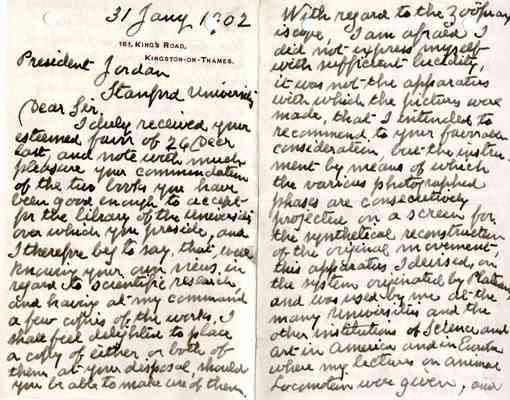 31 Jany 1902
161, KING'S ROAD,
KINGSTON-ON-THAMES.
President Jordan
Stanford University
Dear Sir,
I duly received your
esteemed favor of 26 Decr
last, and note with much
pleasure your commendation
of the two books you have
been good enough to accept
for the library of the University
over which you preside, and
I therefore beg to say, that, well
knowing your own views, in
regard to scientific research,
and having at my command
a few copies of the works, I
shall feel delighted to place
a copy of either, or both of
them, at your disposal, should
you be able to make use of them.
With regard to the Zoöprax
iscope, I am afraid I
did not express myself
with sufficient lucidity,
it was not the apparatus
with which the pictures were
made, that I intended to
recommend to your favorable
consideration, but the instru-
ment by means of which
the various photographed
phases are consecutively
projected on a screen for
the synthetical reconstruction
of the original movement,
this apparatus I devised, on
the system originated by Plateau
and was used by me at the
many Universities and the
other institutions of Science and
Art in America and in Europe
where my lectures on animal
Locomotion were given, and